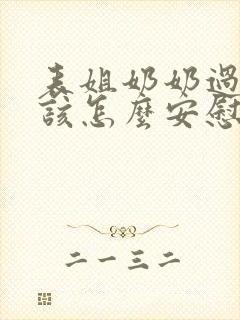 表姐奶奶過
該怎麼安慰
二一三二